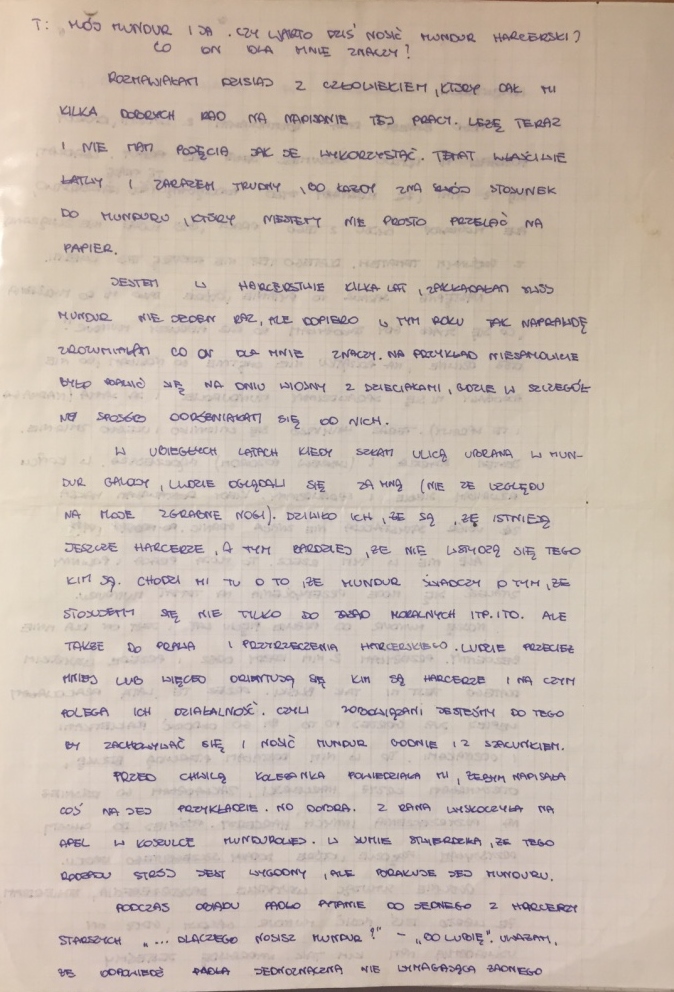 T: MÓJ MUNDUR I JA. CZY WARTO DZIŚ NOSIĆ MUNDUR HARCERSKI?
CO ON DLA MNIE ZNACZY?
ROZMAWIAŁAM DZISIAJ Z CZŁOWIEKIEM, KTÓRY DAŁ MI
KILKA DOBRYCH RAD NA NAPISANIE TEJ PRACY. LEŻĘ TERAZ
I NIE MAM POJĘCIA JAK JE WYKORZYSTAĆ. TEMAT WŁAŚCIWIE
ŁATWY I ZARAZEM TRUDNY, BO KAŻDY ZNA SWÓJ STOSUNEK
DO MUNDURU, KTÓRY NIESTETY NIE PROSTO PRZELAĆ NA
PAPIER.
JESTEM W HARCERSTWIE KILKA LAT, ZAKŁADAŁAM SWÓJ
MUNDUR NIE JEDEN RAZ, ALE DOPIERO W TYM ROKU TAK NAPRAWDĘ
ZROZUMIAŁAM CO ON DLA MNIE ZNACZY. NA PRZYKŁAD NIESAMOWICIE
BYŁO BAWIĆ SIĘ NA DNIU WIOSNY Z DZIECIAKAMI, GDZIE W SZCZEGÓL
NY SPOSÓB ODRÓŻNIAŁAM SIĘ OD NICH.
W UBIEGŁYCH LATACH KIEDY SZŁAM ULICĄ UBRANA W MUN-
DUR GALOWY, LUDZIE OGLĄDALI SIĘ ZA MNĄ (NIE ZE WZGLĘDU
NA MOJE ZGRABNE NOGI). DZIWIŁO ICH, ŻE SĄ, ŻE ISTNIEJĄ
JESZCZE HARCERZE, A TYM BARDZIEJ, ŻE NIE WSTYDZĄ SIĘ TEGO
KIM SĄ. CHODZI MI TU O TO, ŻE MUNDUR ŚWIADCZY O TYM, ŻE
STOSUJEMY SIĘ NIE TYLKO DO ZASAD MORALNYCH ITP. ITD. ALE
TAKŻE DO PRAWA I PRZYRZECZENIA HARCERSKIEGO. LUDZIE PRZECIEŻ
MNIEJ LUB WIĘCEJ ORIENTUJĄ SIĘ KIM SĄ HARCERZE I NA CZYM
POLEGA ICH DZIAŁALNOŚĆ. CZYLI ZOBOWIĄZANI JESTEŚMY DO TEGO
BY ZACHOWYWAĆ SIĘ I NOSIĆ MUNDUR GODNIE I Z SZACUNKIEM.
PRZED CHWILĄ KOLEŻANKA POWIEDZIAŁA MI, ŻEBYM NAPISAŁA
COŚ NA JEJ PRZYKŁADZIE. NO DOBRA. Z RANA WYSKOCZYŁA NA
APEL W KOSZULCE MUNDUROWEJ. W SUMIE STWIERDZIŁA, ŻE TEGO
RODZAJU STRÓJ JEST WYGODNY, ALE BRAKUJE JEJ MUNDURU.
PODCZAS OBIADU PADŁO PYTANIE DO JEDNEGO Z HARCERZY
STARSZYCH „... DLACZEGO NOSISZ MUNDUR?" – „BO LUBIĘ". UWAŻAM,
ŻE ODPOWIEDŹ PADŁA JEDNOZNACZNA NIE WYMAGAJĄCA ŻADNEGO